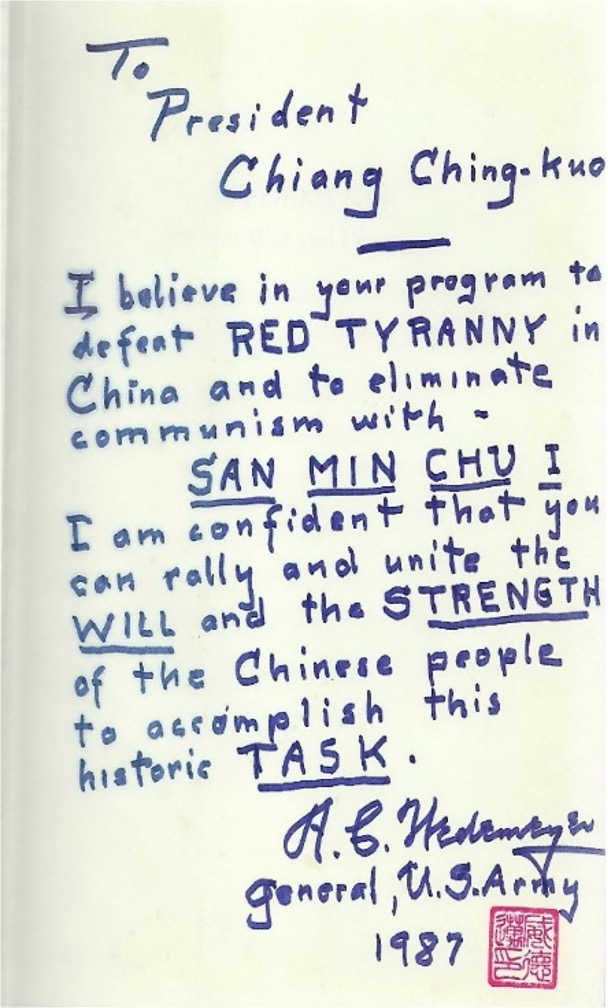 To
President
Chiang Ching-kuo
I believe in your program to
defeat RED TYRANNY in
China and to eliminate
communism with -
SAN MIN CHU I
I am confident that you
can rally and unite the
WILL and the STRENGTH
of the Chinese people
to accomplish this
historic TASK.
A. C. Wedemeyer
general, U.S. Army
1987
威德
邁印